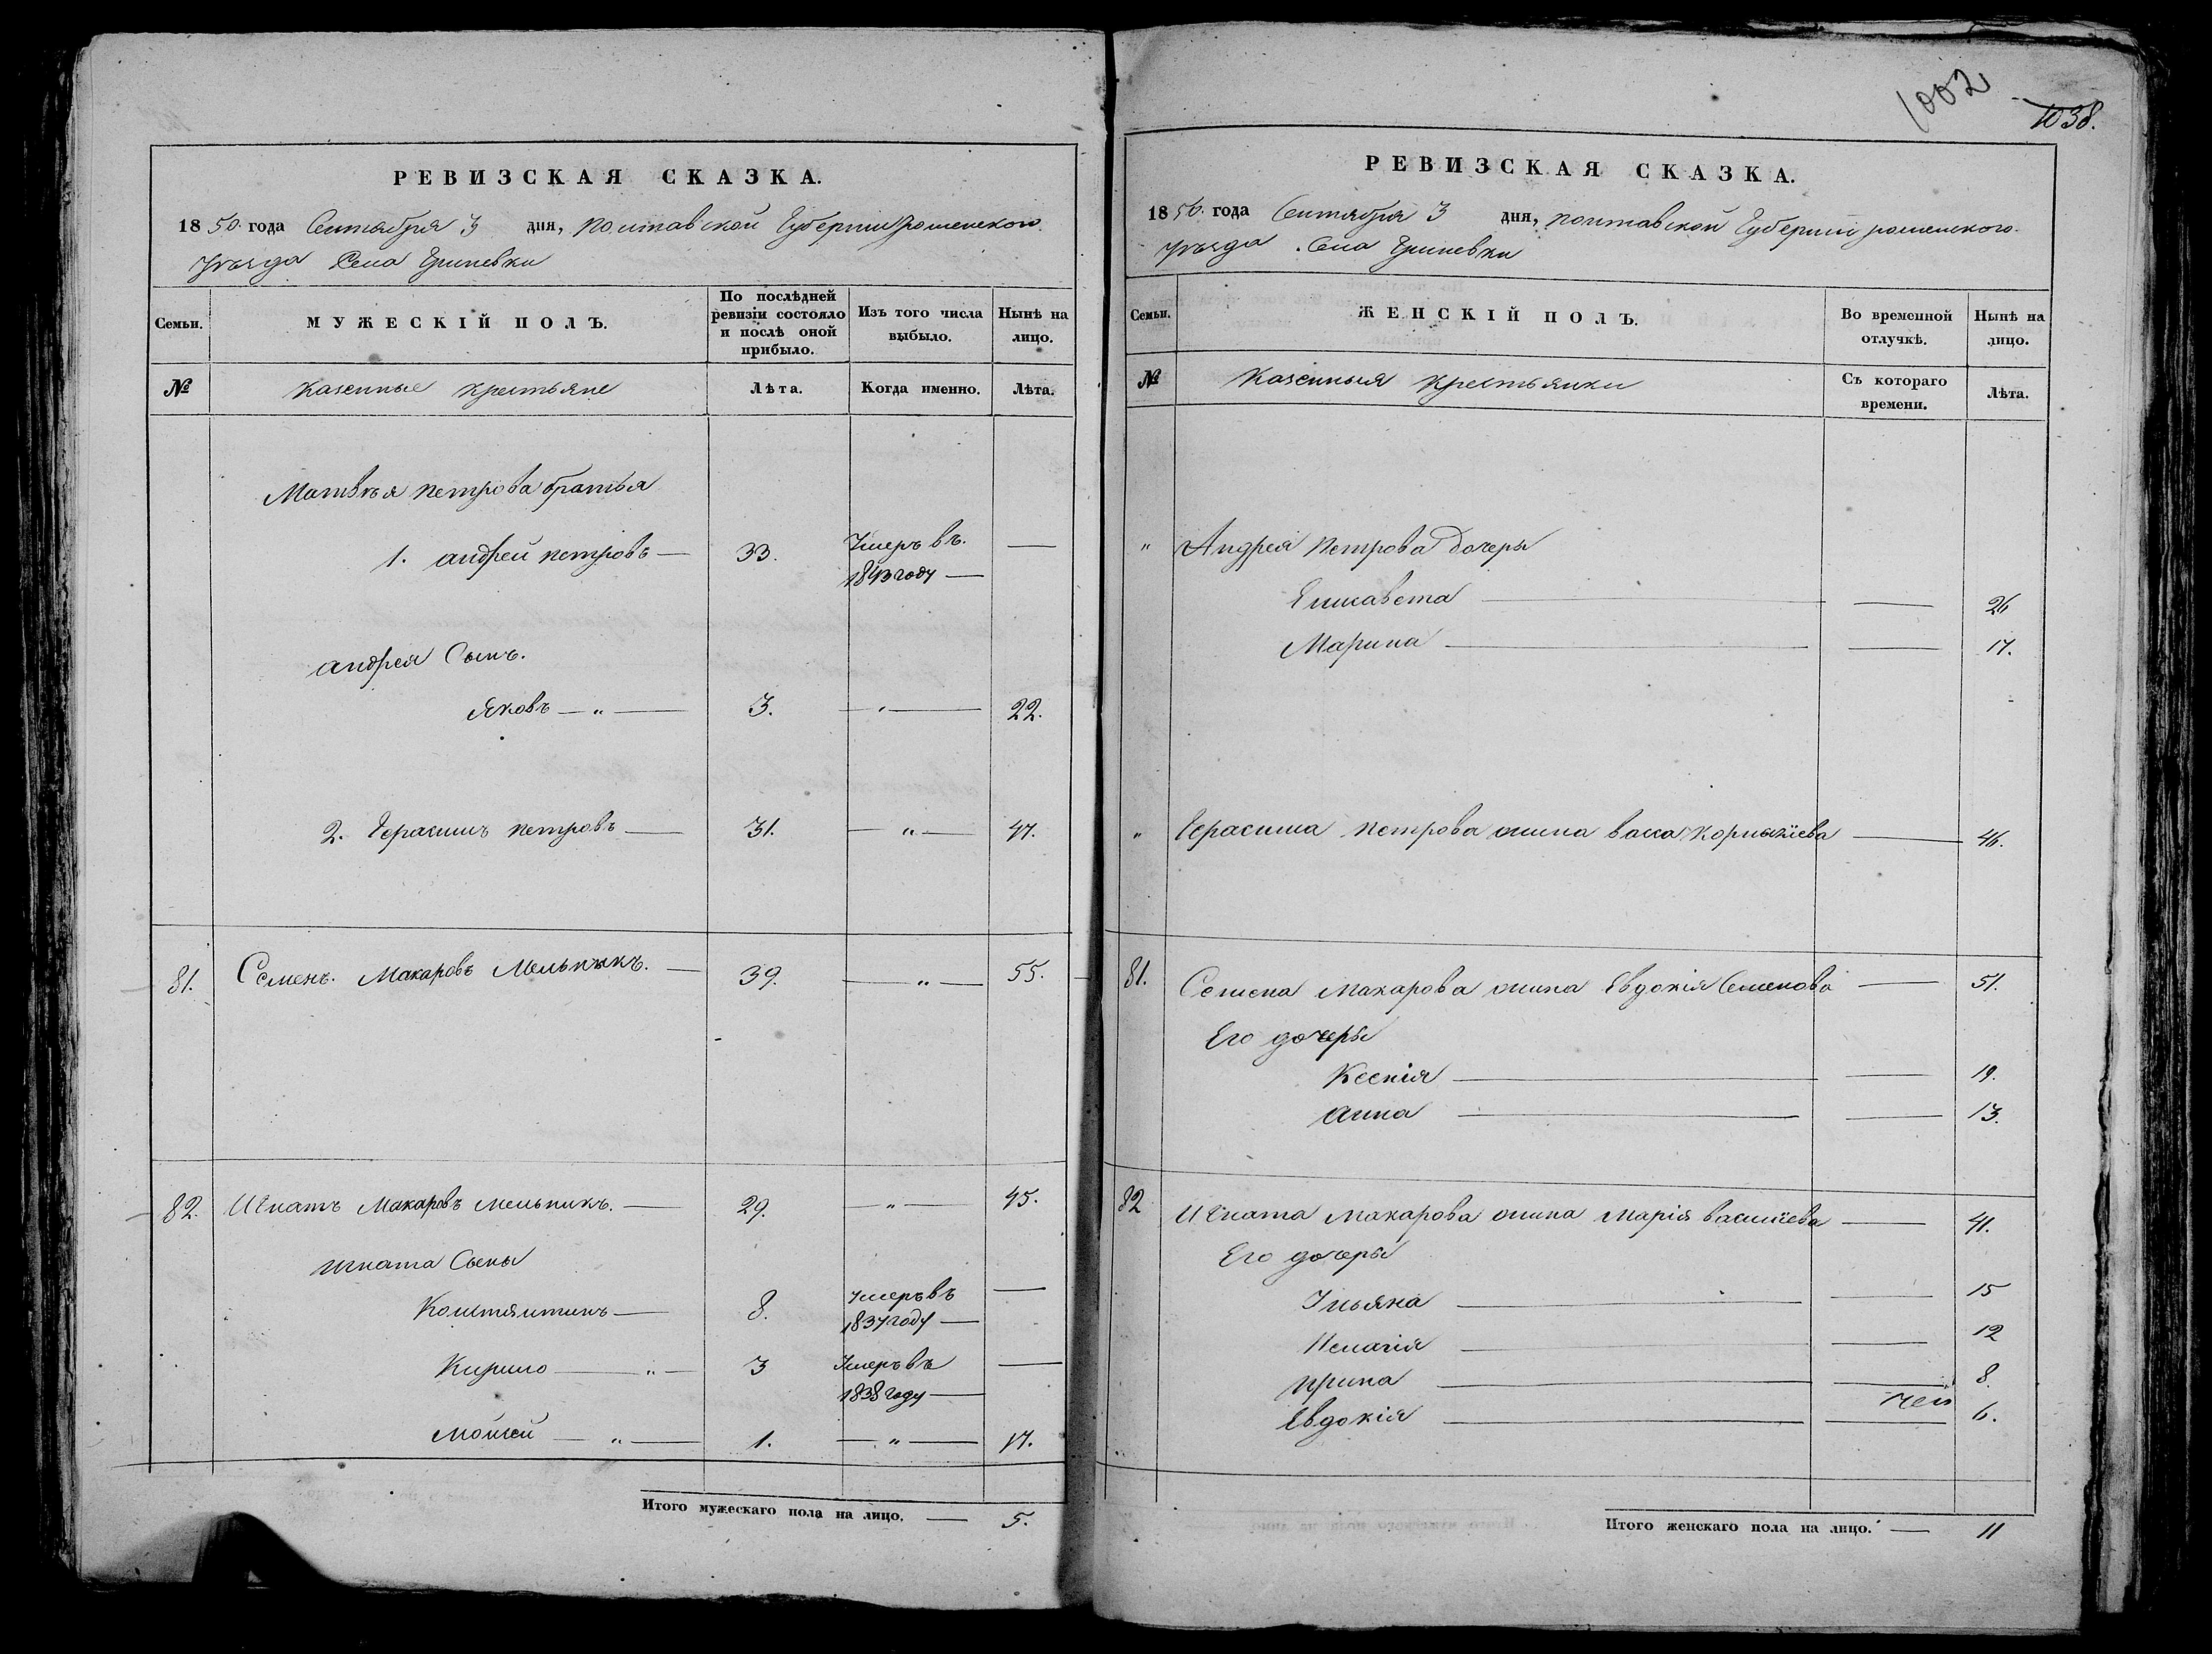 1002
1038.
РЕВИЗСКАЯ СКАЗКА.
1850. года Сентября 3 дня, Полтавской Губернии роменского
уѣзда Села
Семьи.
МУЖЕСКІЙ ПОЛЪ.
По послѣдней ревизіи состояло и послѣ оной прибыло.
Изъ того числа выбыло.
Нынѣ на лицо.
№ Казенные крестьяне Лѣта. Когда именно. Лѣта.
Матвѣя петрова братья
1. андрей петровъ — 33. Умеръ въ. —
1843 году —
андрея Сынъ.
Яковъ — „ — 3. — „ — 22.
2. Герасимъ петровъ — 31. — „ — 47.
81. Семенъ. Макаровъ Мельникъ. — 39. — „ — 55.
82. Игнатъ Макаровъ мельникъ. — 29. — „ — 45.
игната Сыны
Константинъ — 8. Умеръ въ —
1837 году —
Кирило — „ — 3 Умеръ въ —
1838 году —
Мойсей — „ — 1. — „ — 17.
Итого мужескаго пола на лицо. — 5.
РЕВИЗСКАЯ СКАЗКА.
1850. года Сентября 3 дня, полтавской Губернии роменского
уѣзда. Села
Семьи.
ЖЕНСКІЙ ПОЛЪ.
Во временной отлучкѣ.
Нынѣ на лицо.
№ Казенныя крестьянки Съ котораго времени. Лѣта.
„ Андрея Петрова дочеры
Елисавета — — 26
Марина — — 17.
„ Герасима Петрова жина васса корныліева — 46.
81. Семена макарова жина Евдокія Семенова — 51.
Его дочеры
Ксенія — — 19.
анна — — 13.
82 Игната макарова жина марія василіева — 41.
Его дочеры
Ульяна — — 15
Пелагія — — 12
ирина — — 8.
Евдокія — — 6.
Итого женскаго пола на лицо. — 11